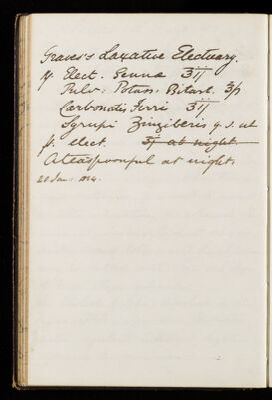 Graves's Laxative Electuary.
℞ Elect. Senna ℥ij
Pulv. Potass. Bitart. ℥j
Carbonatis Ferri ʒij
Syrupi Zinziberis q. s. ut
ft. elect. ʒj at night
A teaspoonful at night.
20 Jan.